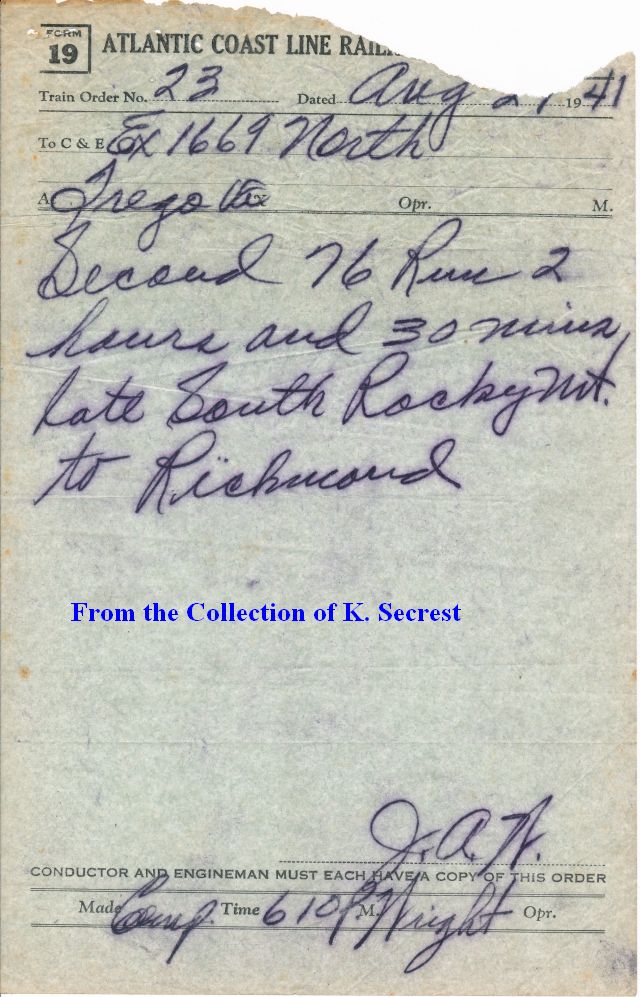 FORM 19 ATLANTIC COAST LINE
Train Order No. 23 Dated Aug 2 , 1941
To C & E Ex 1669 North
A Trego Va Opr. M.
Second 76 Run 2
hours and 30 mins
late South Rocky Mt.
to Richmond
From the Collection of K. Secrest
J. A. W.
CONDUCTOR AND ENGINEMAN MUST EACH HAVE A COPY OF THIS ORDER
Made Comp. Time 610 P M. Wright Opr.